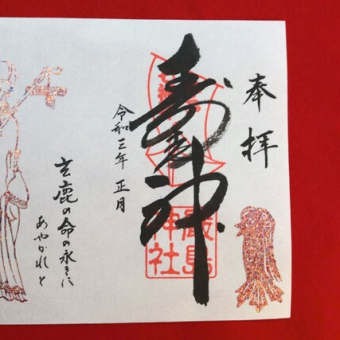 奉拝
寿老神
嚴島
神社
令和三年 正月
玄鹿の命の永きに
あやかれと